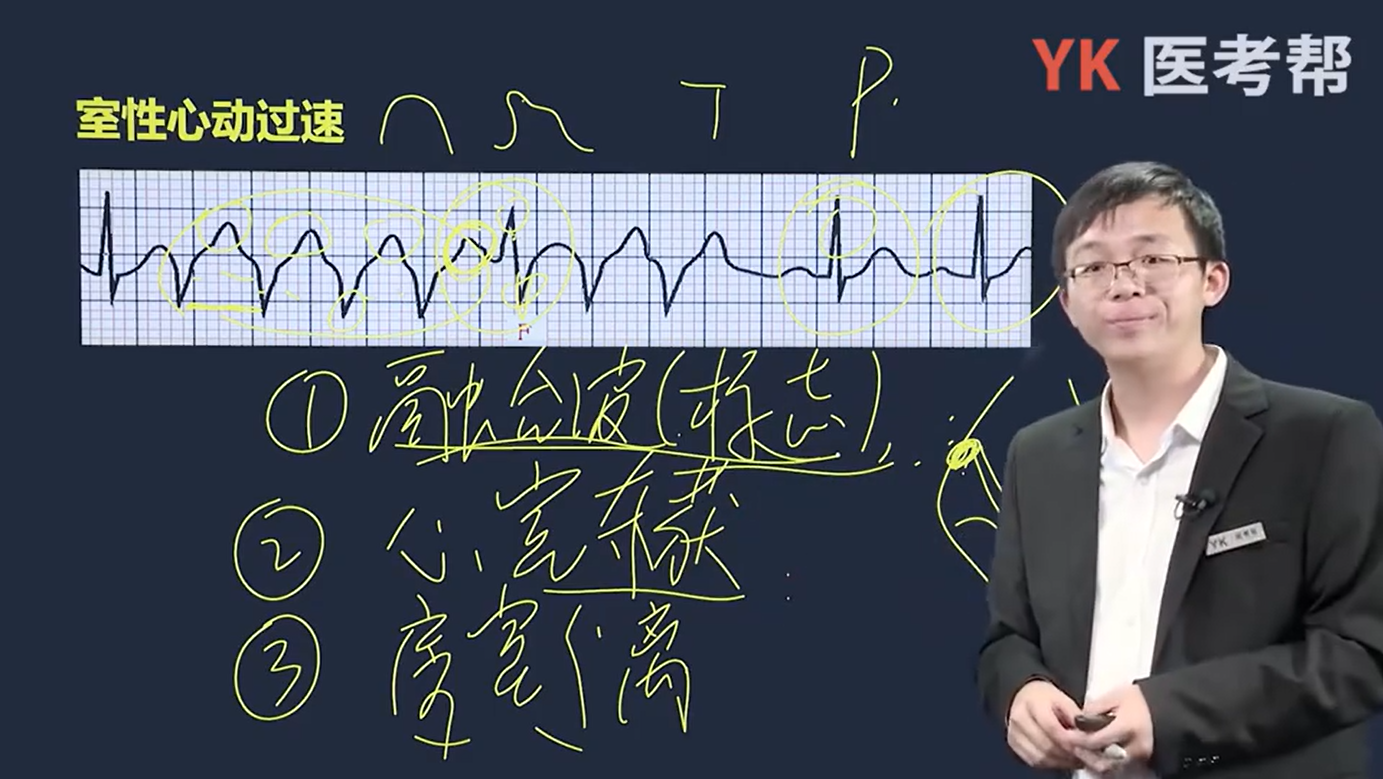 YK 医考帮
室性心动过速
T P
F
① 融合波(标志)
② 心室夺获
③ 房室分离
YK 医考帮